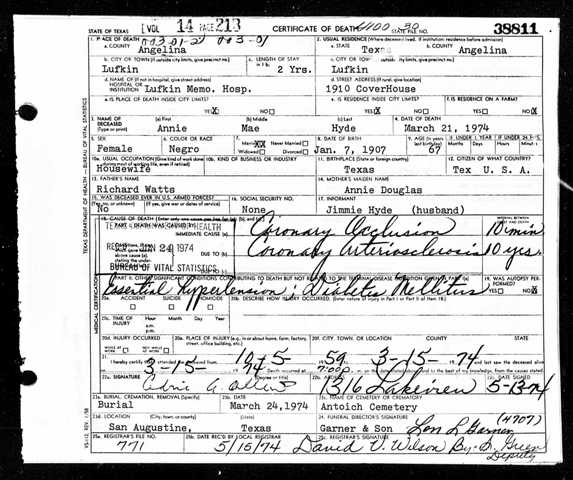 STATE OF TEXAS VOL 14 PAGE 213 CERTIFICATE OF DEATH STATE FILE NO. 38811
1. PLACE OF DEATH 2. USUAL RESIDENCE (Where deceased lived. If institution: residence before admission)
a. COUNTY Angelina a. STATE Texas b. COUNTY Angelina
b. CITY OR TOWN (If outside city limits, give precinct no.) c. LENGTH OF STAY in 1 b. c. CITY OR TOWN (If outside city limits, give precinct no.)
Lufkin 2 Yrs. Lufkin
d. NAME OF (If not in hospital, give street address) HOSPITAL OR INSTITUTION Lufkin Memo. Hosp. d. STREET ADDRESS (If rural, give location) 1910 CoverHouse
e. IS PLACE OF DEATH INSIDE CITY LIMITS? e. IS RESIDENCE INSIDE CITY LIMITS? f. IS RESIDENCE ON A FARM?
YES X NO YES X NO YES NO X
3. NAME OF DECEASED (Type or print) (a) First (b) Middle (c) Last 4. DATE OF DEATH
Annie Mae Hyde March 21, 1974
5. SEX 6. COLOR OR RACE 7. Married Never Married Widowed Divorced 8. DATE OF BIRTH 9. AGE (In years last birthday) IF UNDER 1 YEAR IF UNDER 24 HRS.
Female Negro Jan. 7, 1907 67
10a. USUAL OCCUPATION (Give kind of work done 10b. KIND OF BUSINESS OR INDUSTRY 11. BIRTHPLACE (State or foreign country) 12. CITIZEN OF WHAT COUNTRY?
Housewife Texas Tex U. S. A.
13. FATHER'S NAME 14. MOTHER'S MAIDEN NAME
Richard Watts Annie Douglas
15. WAS DECEASED EVER IN U.S. ARMED FORCES? 16. SOCIAL SECURITY NO. 17. INFORMANT
No None Jimmie Hyde (husband)
18. CAUSE OF DEATH
IMMEDIATE CAUSE (a) Coronary Occlusion 10 min
JUN 24 1974 DUE TO (b) Coronary Arteriosclerosis 10 yrs.
BUREAU OF VITAL STATISTICS
19. WAS AUTOPSY PERFORMED?
Essential Hypertension; Diabetes Mellitus YES NO X
20a. ACCIDENT SUICIDE HOMICIDE 20b. DESCRIBE HOW INJURY OCCURRED. (Enter nature of injury in Part I or Part II of item 18.)
20c. TIME OF INJURY Hour Month Day Year
a.m.
p.m.
20d. INJURY OCCURRED 20e. PLACE OF INJURY (e.g. in or about home, farm, factory, street, office building, etc.) 20f. CITY, TOWN, OR LOCATION COUNTY STATE
21. I hereby certify that I attended the deceased from 10-5- 59 3-15- 74 and last saw the deceased alive
3-15- 74 Death occurred at 7:00p m.
22a. SIGNATURE 22b. ADDRESS 22c. DATE SIGNED
1316 Lakeview 5-13-74
23a. BURIAL, CREMATION, REMOVAL (Specify) 23b. DATE 23c. NAME OF CEMETERY OR CREMATORY
Burial March 24, 1974 Antoich Cemetery
23d. LOCATION (City, town, or county) (State) 24. FUNERAL DIRECTOR'S SIGNATURE (4707)
San Augustine, Texas Garner & Son Len L Garner
25a. REGISTRAR'S FILE NO. 25b. DATE REC'D BY LOCAL REGISTRAR 25c. REGISTRAR'S SIGNATURE
771 5/15/74 David V. Wilson By: D. Green Deputy